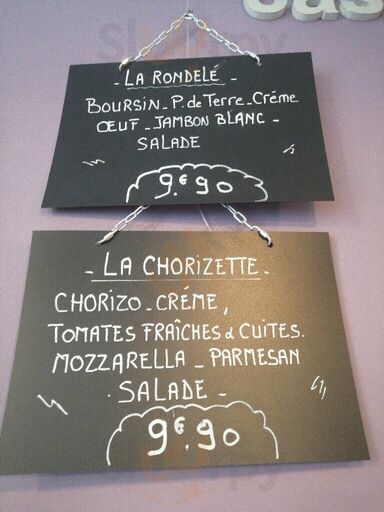 - LA RONDELÉ -
BOURSIN - P. de Terre - Crème
ŒUF - JAMBON BLANC -
SALADE
9.€90
- LA CHORIZETTE -
CHORIZO - CRÈME,
TOMATES FRAÎCHES & CUITES.
MOZZARELLA - PARMESAN
- SALADE -
9€.90